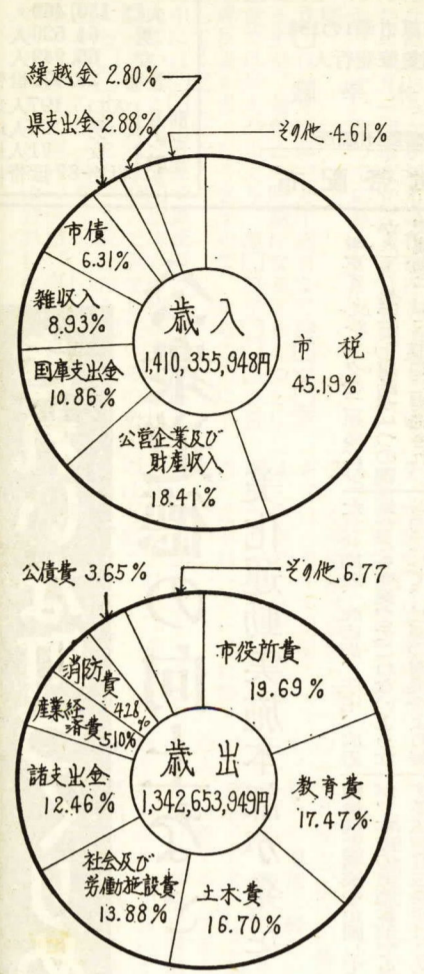 繰越金 2.80%
県支出金 2.88%
その他 4.61%
市債
6.31%
雑収入
8.93%
国庫支出金
10.86%
公営企業及び
財産収入
18.41%
市税
45.19%
歳入
1,410,355,948円
公債費 3.65%
その他 6.77
消防費
4.28%
産業経
済費 5.10%
諸支出金
12.46%
社会及び
労働施設費
13.88%
土木費
16.70%
教育費
17.47%
市役所費
19.69%
歳出
1,342,653,949円